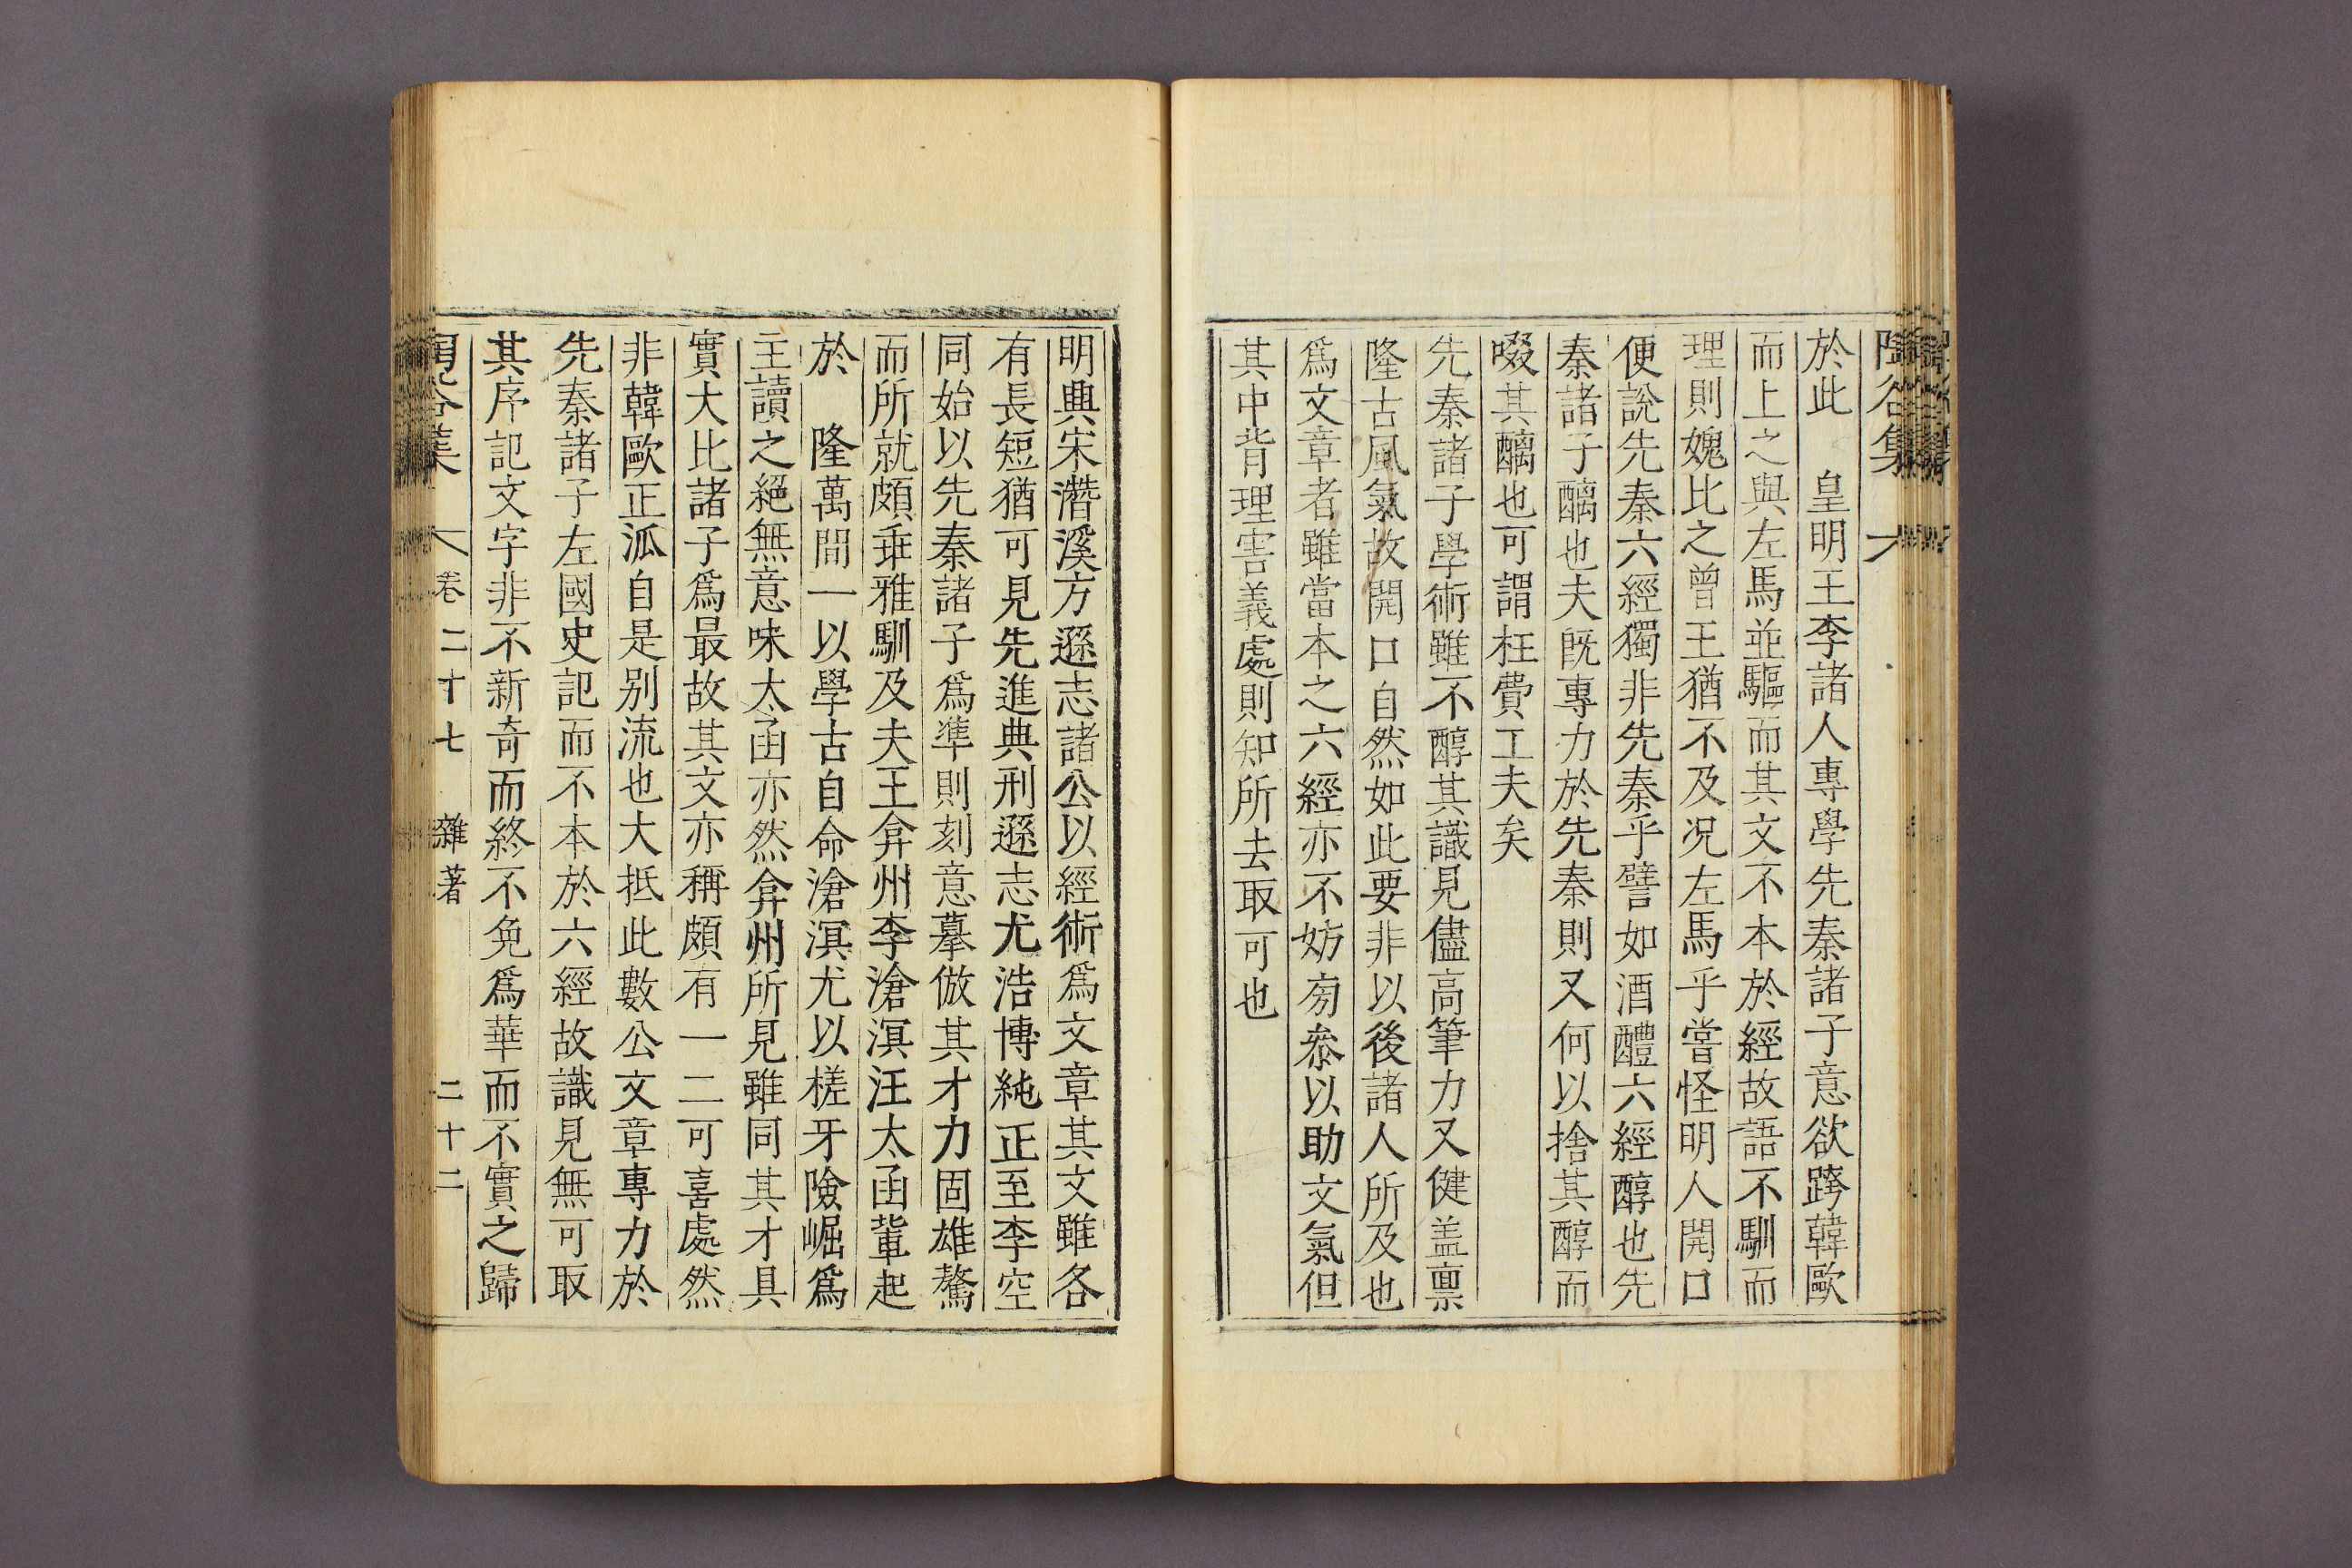 於此　皇明王李諸人專學先秦諸子意欲跨韓歐
而上之與左馬並驅而其文不本於經故語不馴而
理則媿比之曾王猶不及况左馬乎嘗怪明人開口
便說先秦六經獨非先秦乎譬如酒醴六經醇也先
秦諸子醨也夫旣專力於先秦則又何以捨其醇而
啜其醨也可謂枉費工夫矣
先秦諸子學術雖不醇其識見儘高筆力又健盖禀
隆古風氣故開口自然如此要非以後諸人所及也
爲文章者雖當本之六經亦不妨旁叅以助文氣但
其中背理害義處則知所去取可也
明興宋潛溪方遜志諸公以經術爲文章其文雖各
有長短猶可見先進典刑遜志尤浩博純正至李空
同始以先秦諸子爲準則刻意摹倣其才力固雄驁
而所就頗乖雅馴及夫王弇州李滄溟汪太函輩起
於　隆萬間一以學古自命滄溟尤以槎牙險崛爲
主讀之絕無意味太函亦然弇州所見雖同其才具
實大比諸子爲最故其文亦稱頗有一二可喜處然
非韓歐正派自是別流也大抵此數公文章專力於
先秦諸子左國史記而不本於六經故識見無可取
其序記文字非不新奇而終不免爲華而不實之歸
谷集　卷二十七　雜著　二十二